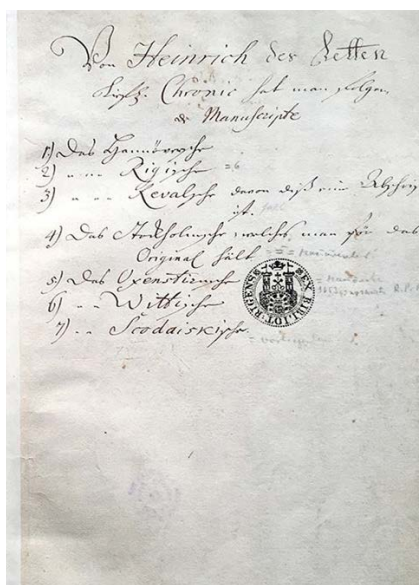 Von Heinrich des Letten
Chronic hat man folgen-
de Manuscripte
1) Das Hannövrische
2) " " Rigische =6
3) " " Revalsche davon diß eine Abschrift
ist.
4) Das Stockholmsche welches man für das
Original hält
5) Das Oxenstirnsche
6) " " Wittische
7) " " Scodaiskische
EX BIBLIOT. RIGENSIS